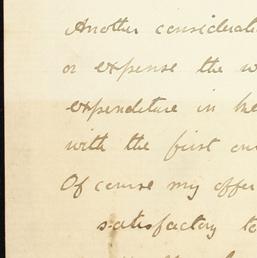 Another considerati
or expense the w
expenditure in ke
with the first on
Of course my offer
satisfactory to